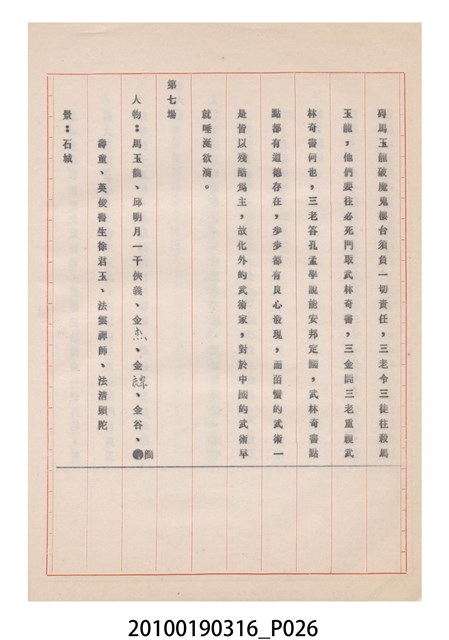 碍馬玉龍破魔鬼樓台須負一切責任，三老令三徒往殺馬
玉龍，他們要往必死門取武林奇書，三金問三老重視武
林奇書何也，三老答孔孟學說能安邦定國，武林奇書點
點都有道德存在，步步都有良心發現，而苗蠻的武術一
是皆以殘酷為主，故化外的武術家，對於中國的武術早
就唾涎欲滴。
第七場
人物：馬玉龍、邱明月一干俠義、金杰、金諒、金谷、
壽童、英俊書生徐君玉、法雲禪師、法清頭陀
景：石城
20100190316_P026